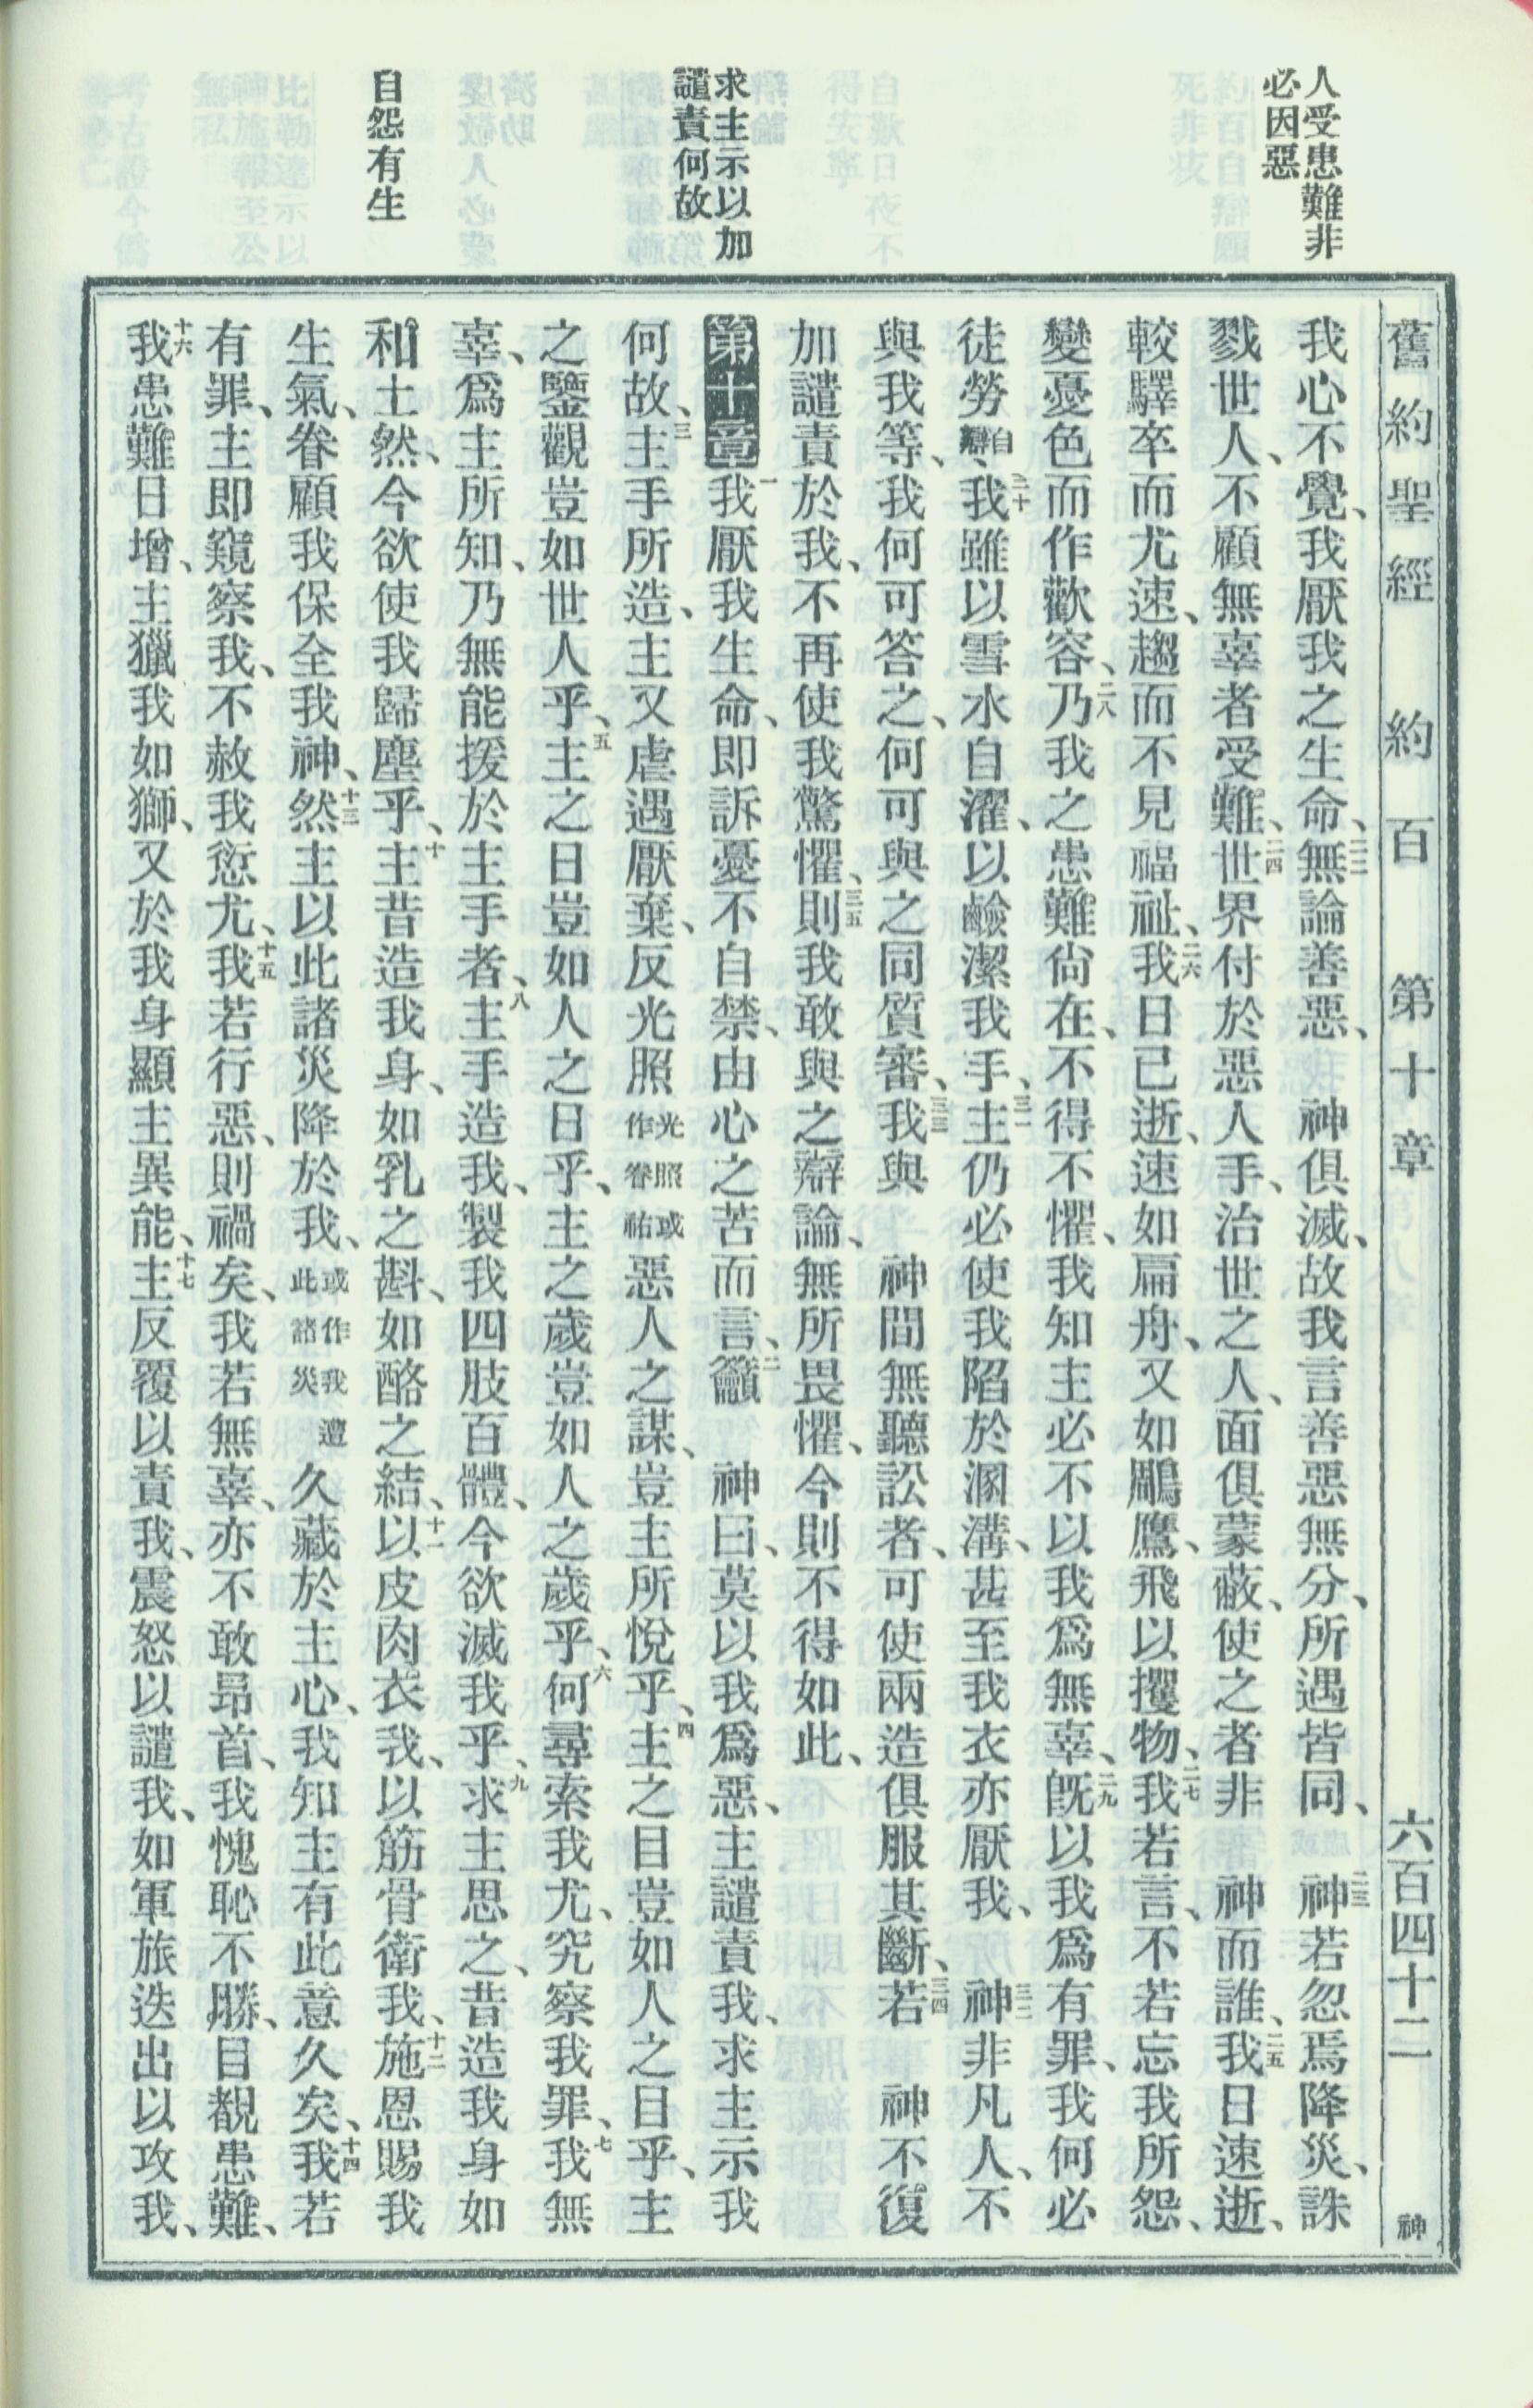 人受患難非
必因惡
求主示以加
譴責何故
自怨有生
舊約聖經 約百 第十章 六百四十二 神
我心不覺、我厭我之生命、二二無論善惡、 神俱滅、故我言善惡無分、所遇皆同、 二三神若忽焉降災、誅
戮世人、不顧無辜者受難、二四世界付於惡人手、治世之人、面俱蒙蔽、使之者非 神而誰、二五我日速逝、
較驛卒而尤速、趨而不見福祉、二六我日已逝、速如扁舟、又如鵰鷹、飛以攫物、二七我若言、不若忘我所怨、
變憂色而作歡容、二八乃我之患難尙在、不得不懼、我知主必不以我爲無辜、二九旣以我爲有罪、我何必
徒勞自辯、三十我雖以雪水自濯、以鹼潔我手、三一主仍必使我陷於溷溝、甚至我衣亦厭我、 三二神非凡人、不
與我等、我何可答之、何可與之同質審、三三我與 神間無聽訟者、可使兩造俱服其斷、三四若 神不復
加譴責於我、不再使我驚懼、三五則我敢與之辯論、無所畏懼、今則不得如此、
第十章 一我厭我生命、卽訴憂不自禁、由心之苦而言、二籲 神曰、莫以我爲惡、主譴責我、求主示我
何故、三主手所造、主又虐遇厭棄、反光照光照或作眷祐惡人之謀、豈主所悅乎、四主之目豈如人之目乎、主
之鑒觀豈如世人乎、五主之日豈如人之日乎、主之歲豈如人之歲乎、六何尋索我尤、究察我罪、七我無
辜、爲主所知、乃無能援於主手者、八主手造我、製我四肢百體、今欲滅我乎、九求主思之、昔造我身如
和土然、今欲使我歸塵乎、十主昔造我身、如乳之斟、如酪之結、十一以皮肉衣我、以筋骨衛我、十二施恩賜我
生氣、眷顧我保全我神、十三然主以此諸災降於我、或作我遭此諸災久藏於主心、我知主有此意久矣、十四我若
有罪、主卽窺察我、不赦我愆尤、十五我若行惡、則禍矣、我若無辜、亦不敢昂首、我愧恥不勝、目覩患難、
十六我患難日增、主獵我如獅、又於我身顯主異能、十七主反覆以責我、震怒以譴我、如軍旅迭出以攻我、